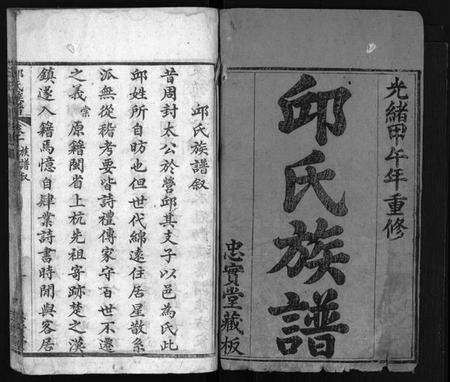 光緒甲午年重修
邱氏族譜
忠實堂藏板
邱氏族譜叙
昔周封太公於營邱其支子以邑為氏此
邱姓所自昉也但世代綿遠住居星散系
派無從稽考要皆詩禮傳家守百世不遷
之義宗原籍閩省上杭先祖寄跡楚之漢
鎮遂入籍焉憶自肄業詩書時聞與客居
族譜叙